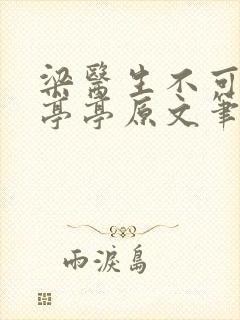 梁醫生不可
亭亭原文筆
雨淚島